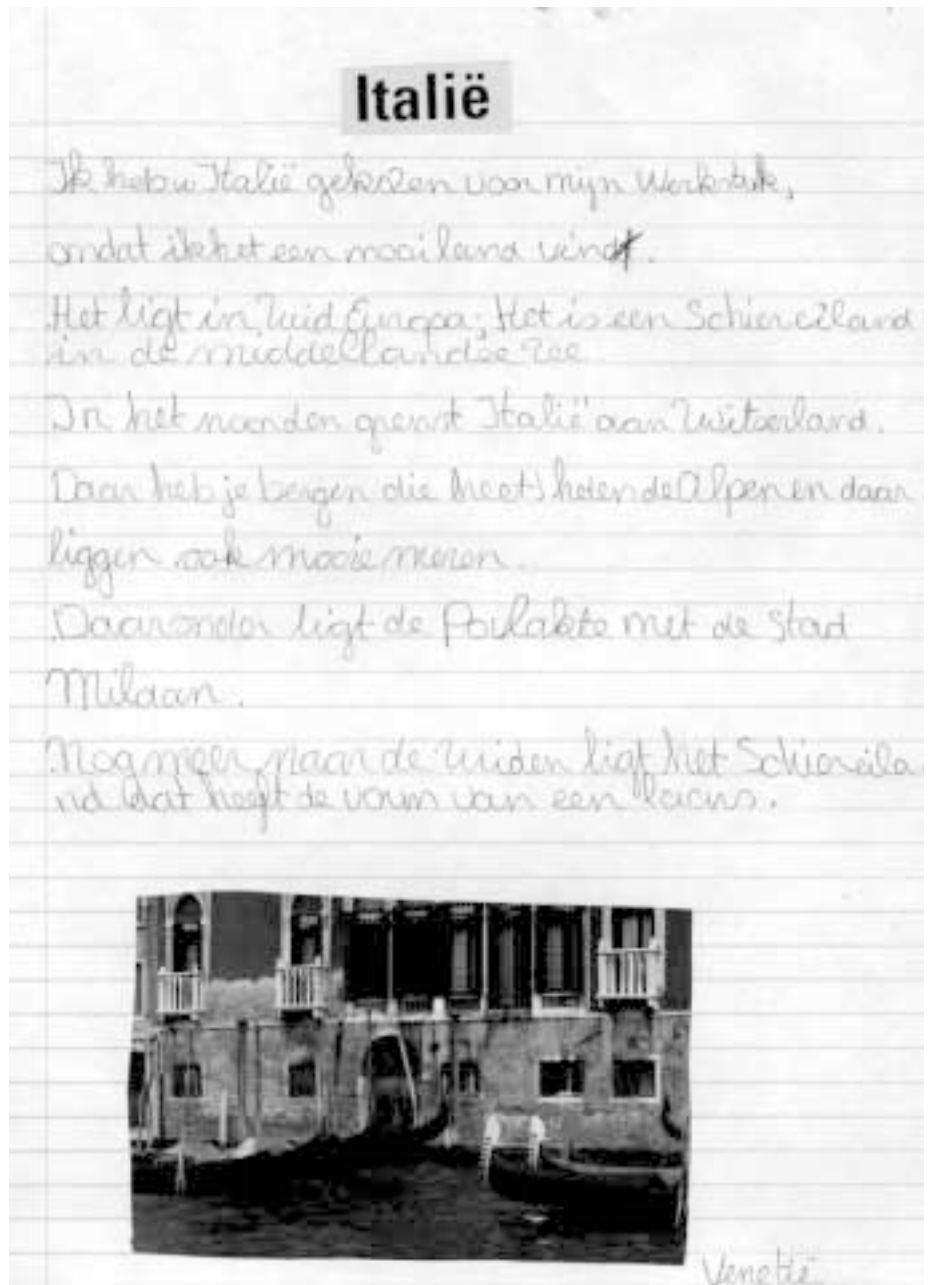 Italië
Ik heb Italië gekozen voor mijn Werkstuk,
omdat ik het een mooi land vind.
Het ligt in Zuid Europa; Het is een Schiereiland
in de middellandse zee
In het noorden grenst Italië aan Zwitserland.
Daar heb je bergen die heet heten de Alpen en daar
liggen ook mooie meren.
Daaronder ligt de Povlakte met de stad
Milaan.
Nog meer naar de zuiden ligt het Schiereila
nd dat heeft de vorm van een laars.
Venetië